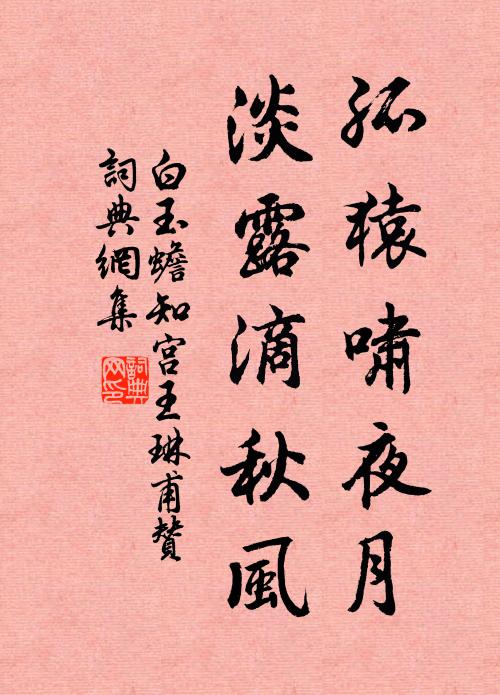 孤猿嘯夜月
淡露滴秋風
白玉蟾知宮王琳甫贊
詞典網集
詞典網印